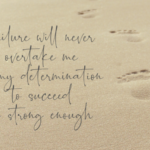 ilure will never
overtake me
my determination
to succeed
strong enough